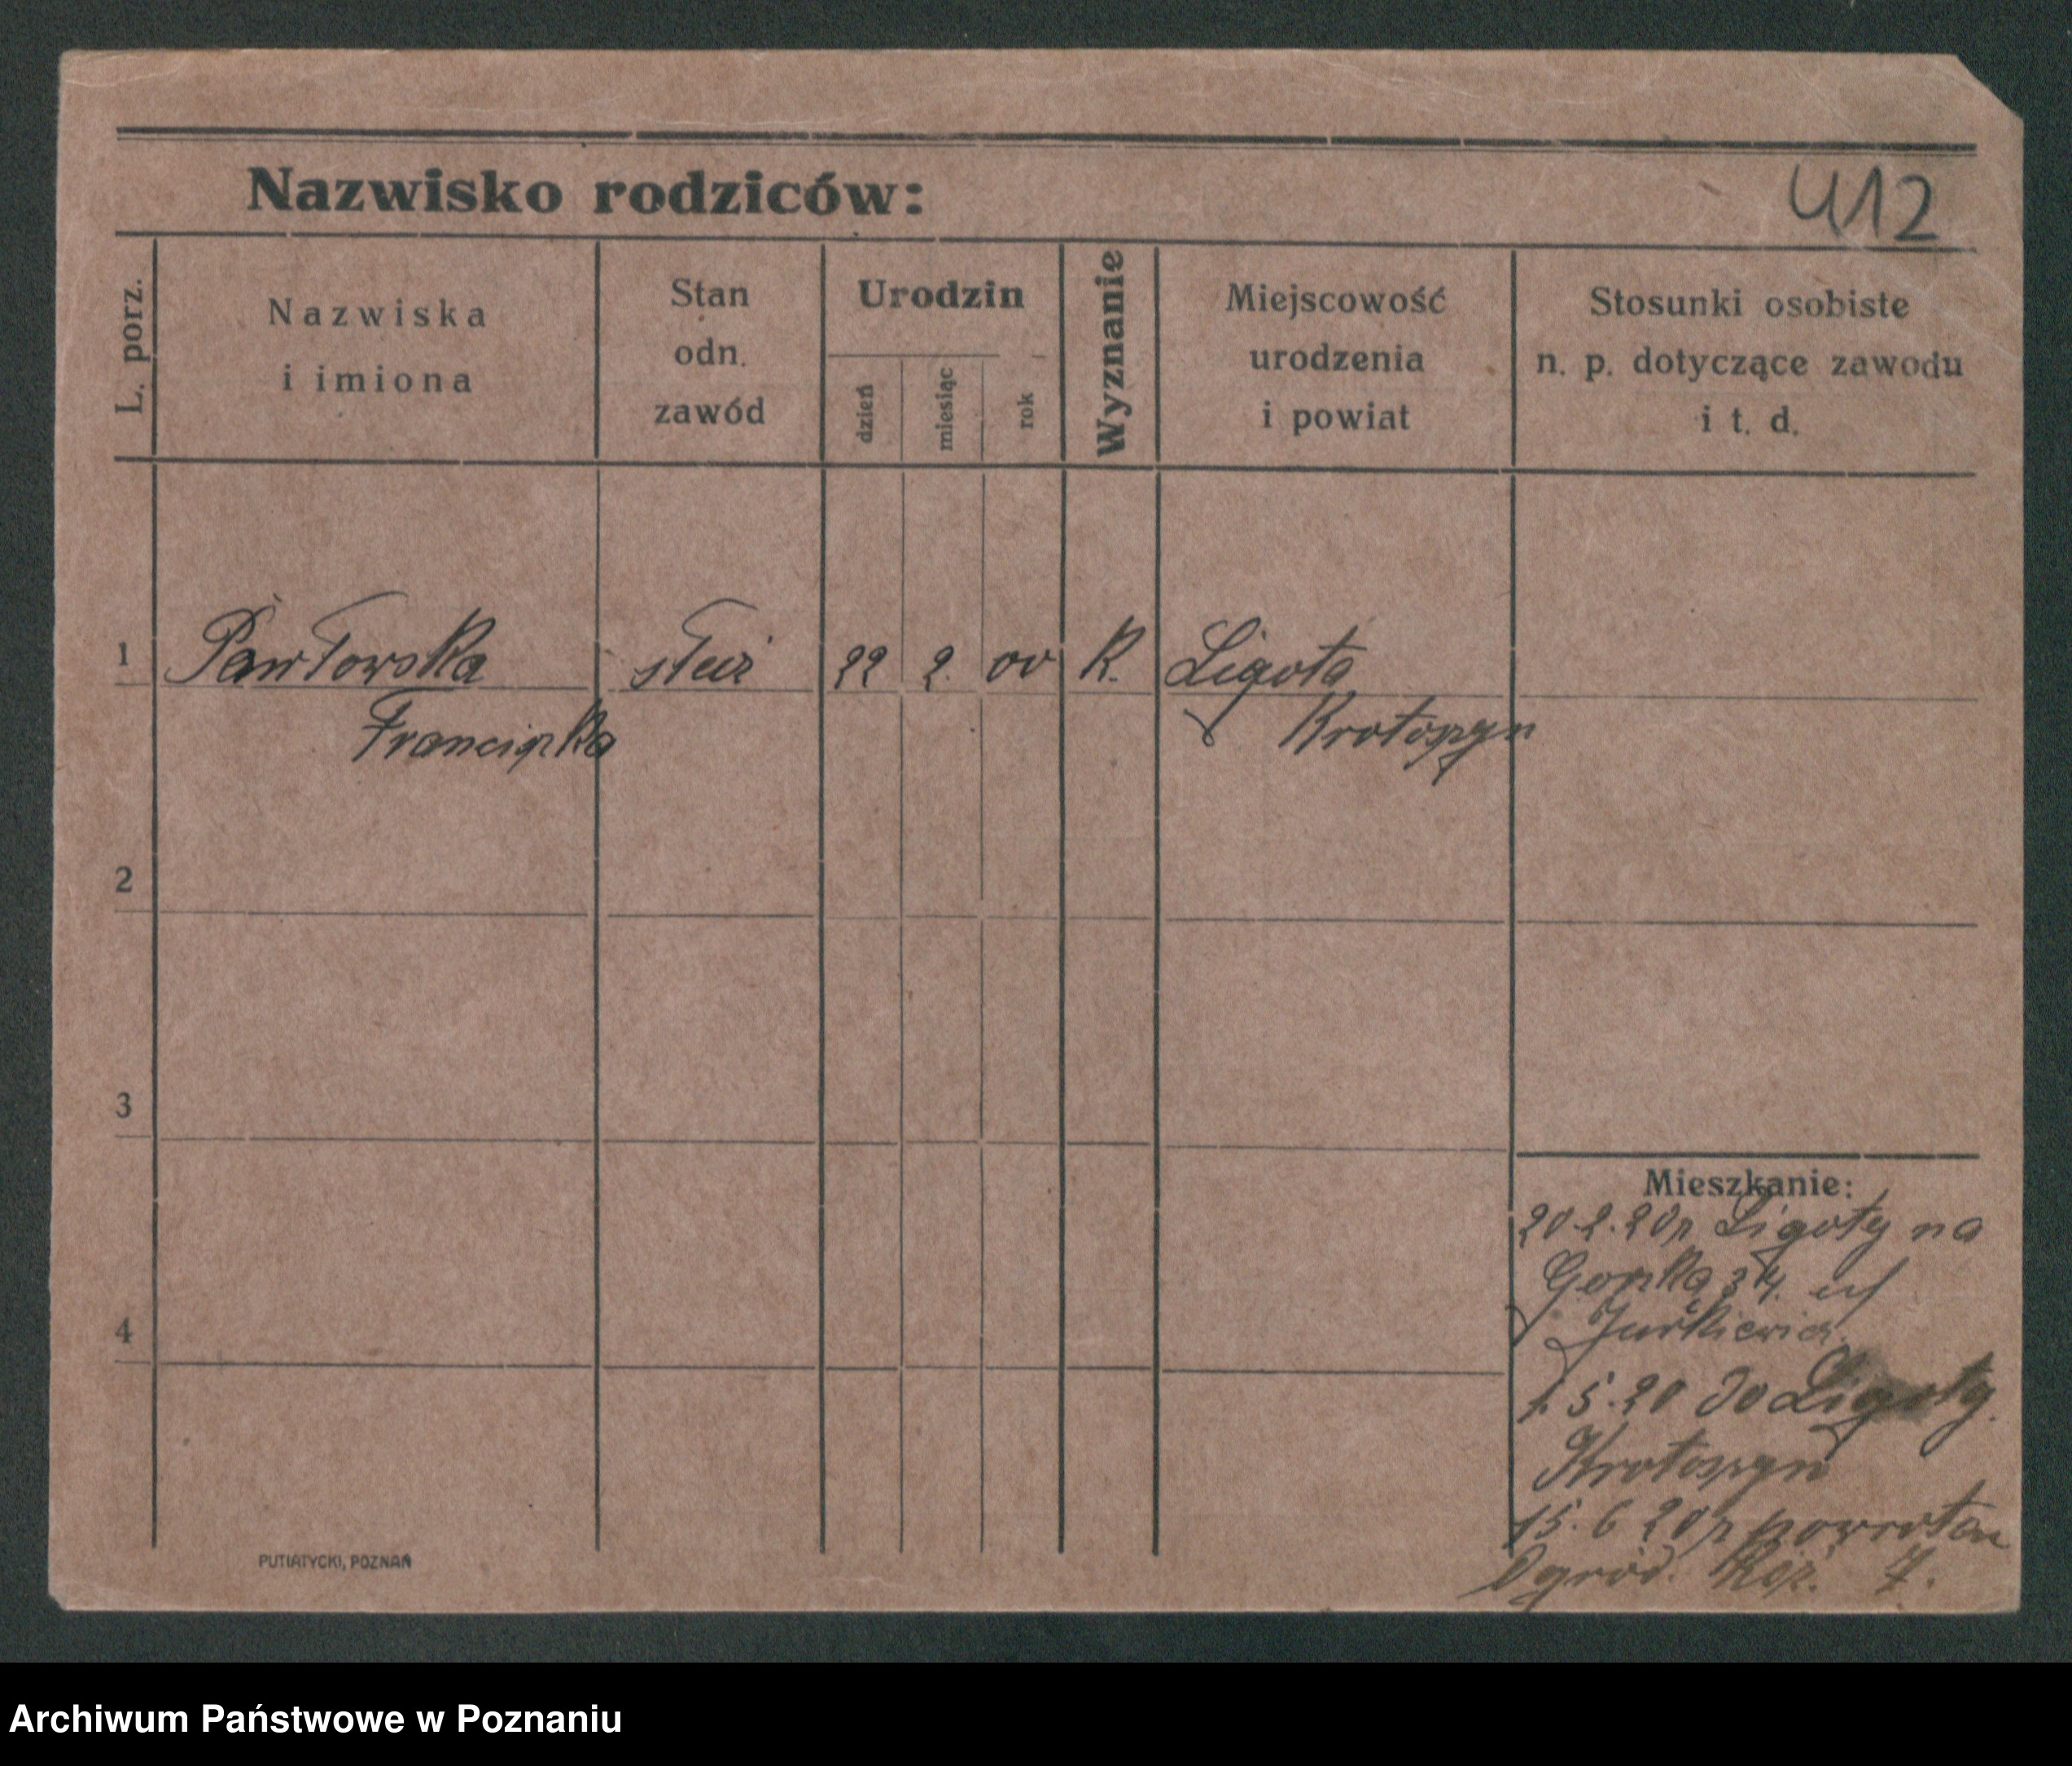 Nazwisko rodziców:
412
L. porz.
Nazwiska
i imiona
Stan
odn.
zawód
Urodzin
dzień
miesiąc
rok
Wyznanie
Miejscowość
urodzenia
i powiat
Stosunki osobiste
n. p. dotyczące zawodu
i t. d.
1 Pawłowska służ 22 2. 00 K. Ligota
Franciszka Krotoszyn
2
3
4
Mieszkanie:
20.2.20 z Ligoty na
34.
Jurkiewicz
1.5.20 do Ligoty.
Krotoszyn
15.6 20 z powrotem
Ogród. 7.
PUTIATYCKI, POZNAŃ
Archiwum Państwowe w Poznaniu